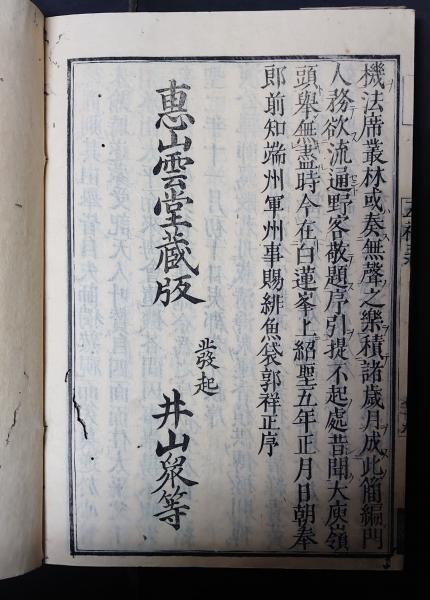 機法席叢林或奏無聲之樂積諸歳月成此簡編門
人務欲流通野客敬題序引提不起處昔聞大庾嶺
頭舉無盡時今在白蓮峯上紹聖五年正月日朝奉
郎前知端州軍州事賜緋魚袋郭祥正序
惠山雲堂蔵版
發起
井山衆等